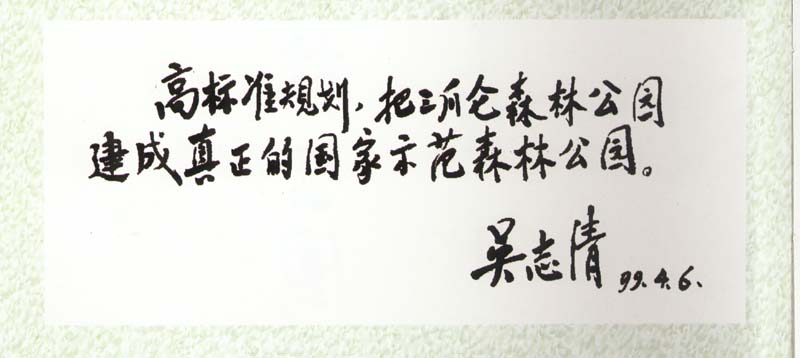 高标准规划，把三爪仑森林公园
建成真正的国家示范森林公园。
吴志清 99.4.6.